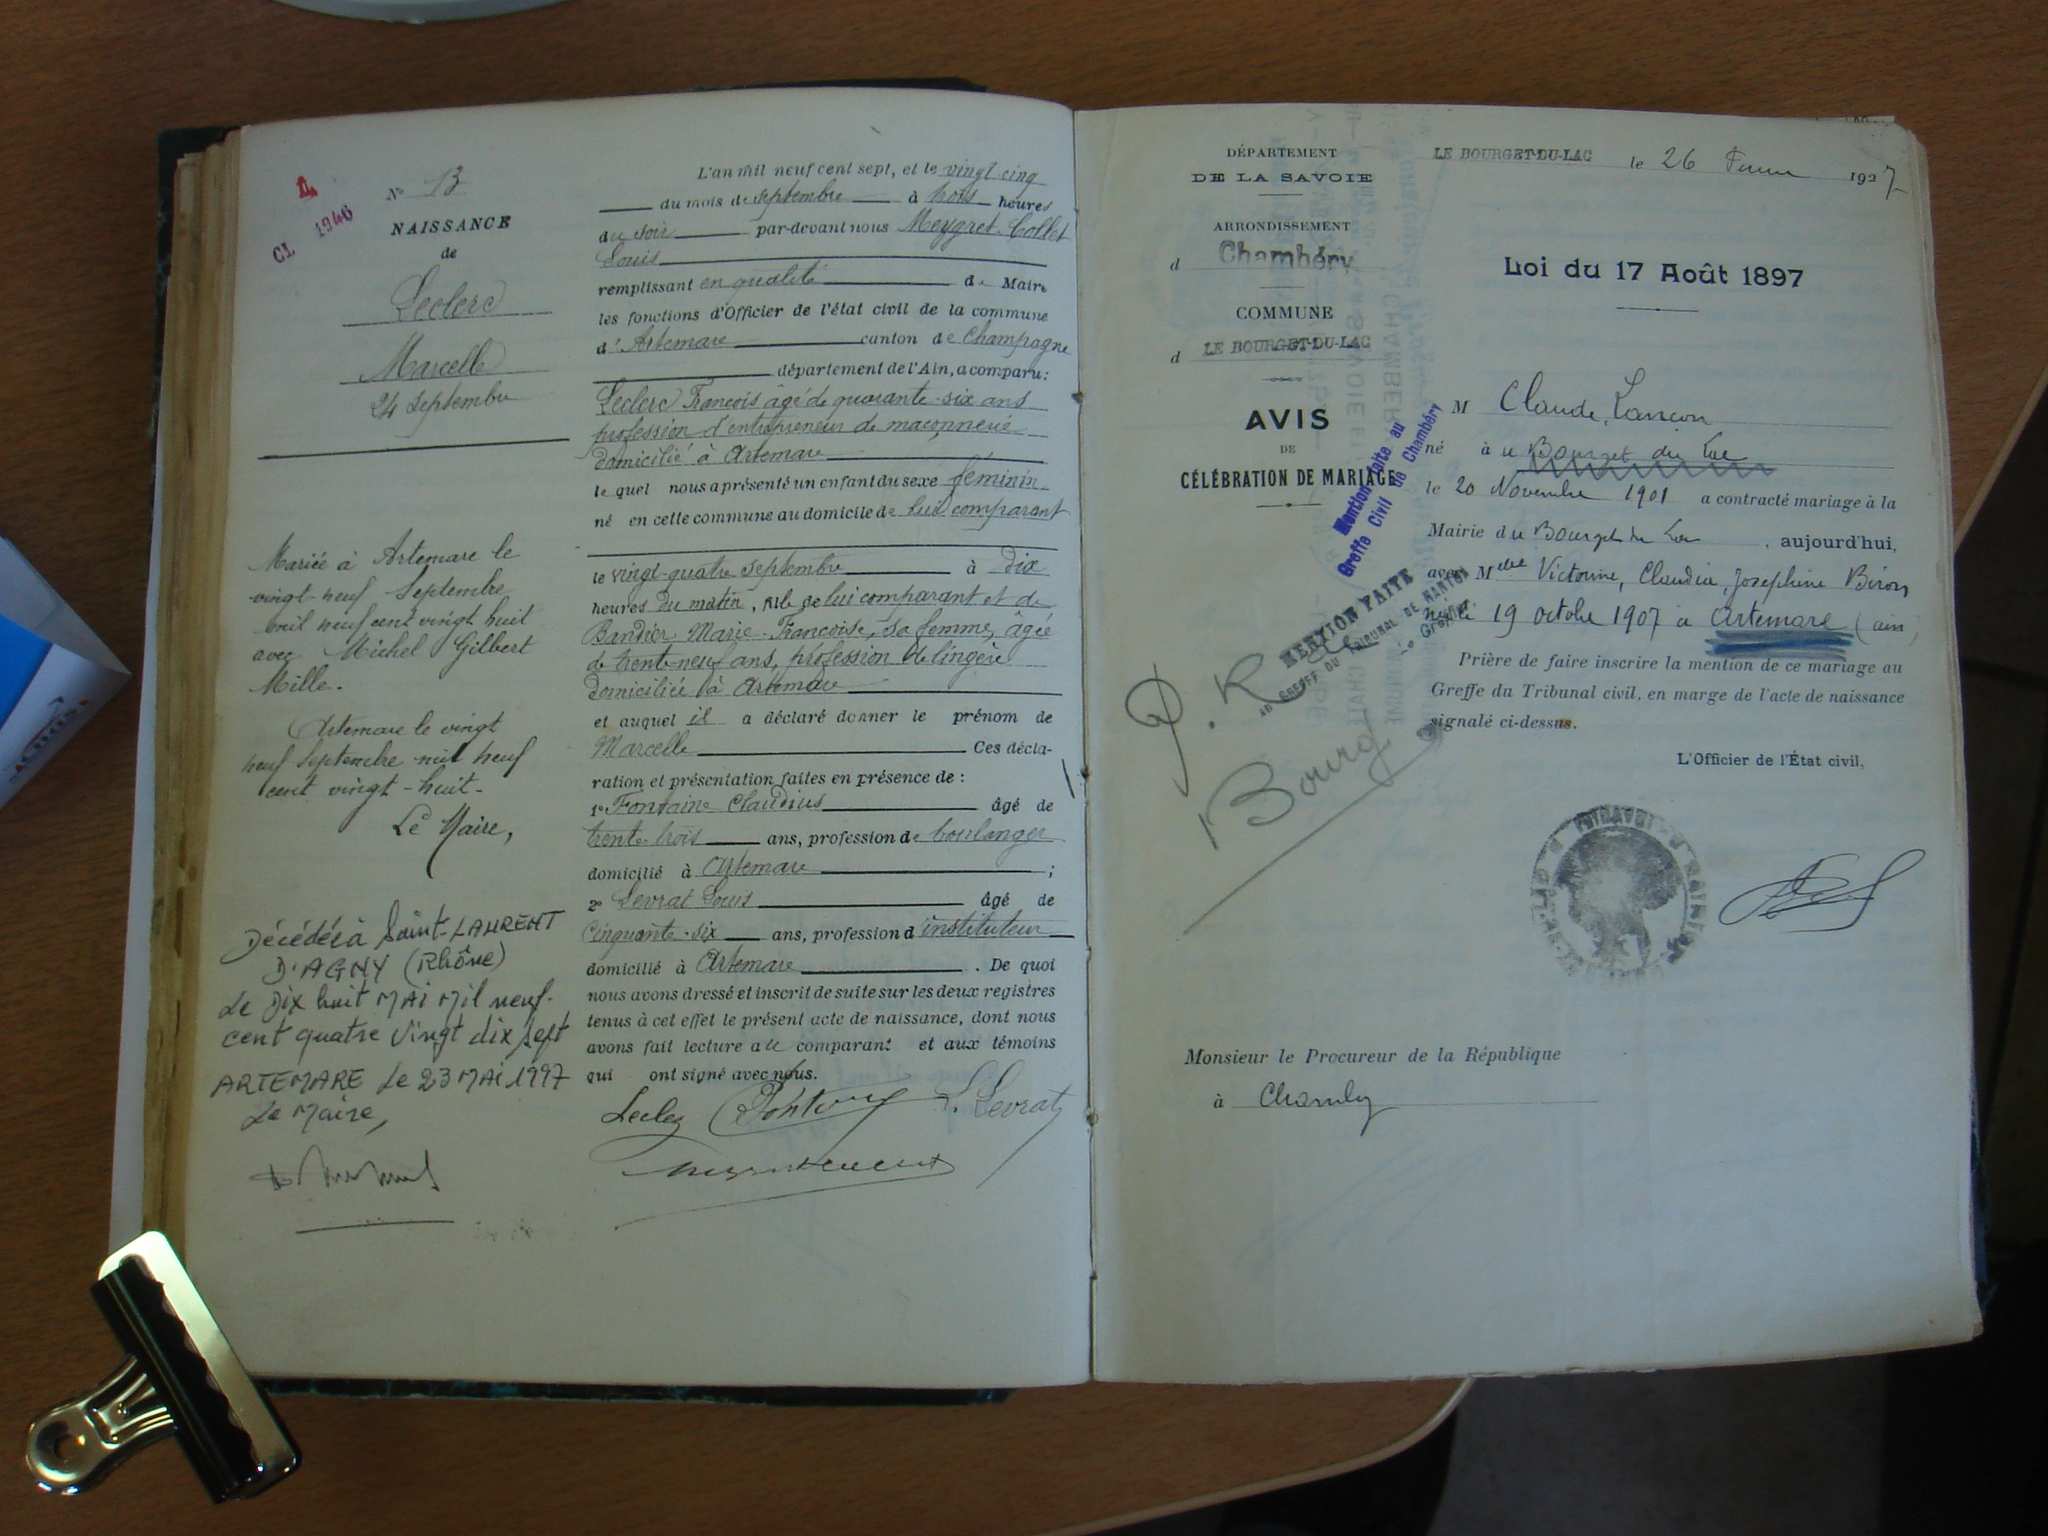 N° 13
NAISSANCE
de
Leclerc
Marcelle
24 Septembre
CL 1946
Mariée à Artemare le
vingt-neuf Septembre
mil neuf cent vingt huit
avec Michel Gilbert
Mille.
Artemare le vingt
neuf Septembre mil neuf
cent vingt-huit-
Le Maire,
Décédée à Saint-LAURENT
D'AGNY (Rhône)
Le Dix huit MAI Mil neuf-
cent quatre vingt dix sept
ARTEMARE Le 23 MAI 1997
Le Maire,
L'an mil neuf cent sept, et le vingt-cinq
du mois de septembre à trois heures
du soir par-devant nous Meygret-Collet
Louis
remplissant en qualité de Maire
les fonctions d'Officier de l'état civil de la commune
d'Artemare canton de Champagne
département de l'Ain, a comparu:
Leclerc François âgé de quarante-six ans
profession d'entrepreneur de maçonnerie
domicilié à Artemare
lequel nous a présenté un enfant du sexe féminin
né en cette commune au domicile de lui comparant
le vingt-quatre septembre à dix
heures du matin, fils de lui comparant et de
Bandéer Marie-Françoise, sa femme, âgée
de trente-neuf ans, profession de lingère
domiciliée à Artemare
et auquel il a déclaré donner le prénom de
Marcelle Ces décla-
ration et présentation faites en présence de :
1° Fontaine Claudius âgé de
trente-trois ans, profession de boulanger
domicilié à Artemare ;
2° Levrat Louis âgé de
cinquante-six ans, profession d'instituteur
domicilié à Artemare . De quoi
nous avons dressé et inscrit de suite sur les deux registres
tenus à cet effet le présent acte de naissance, dont nous
avons fait lecture au comparant et aux témoins
qui ont signé avec nous.
Leclerc L. Levrat
DÉPARTEMENT
DE LA SAVOIE
ARRONDISSEMENT
d Chambéry
COMMUNE
d LE BOURGET-DU-LAC
AVIS
DE
CÉLÉBRATION DE MARIAGE
Mention faite au
Greffe Civil de Chambéry
MENTION FAITE
AU GREFFE DU TRIBUNAL DE NANTUA
Le Greffier
P. R. de
Bourg
LE BOURGET-DU-LAC le 26 1927
Loi du 17 Août 1897
M Claude, Lançon
né à u Bourget du Lac
le 20 Novembre 1901 a contracté mariage à la
Mairie du Bourget du Lac , aujourd'hui,
avec Melle Victorine, Claudia, Josephine Biron
née le 19 octobre 1907 à Artemare (ain)
Prière de faire inscrire la mention de ce mariage au
Greffe du Tribunal civil, en marge de l'acte de naissance
signalé ci-dessus.
L'Officier de l'État civil,
Monsieur le Procureur de la République
à Chambéry